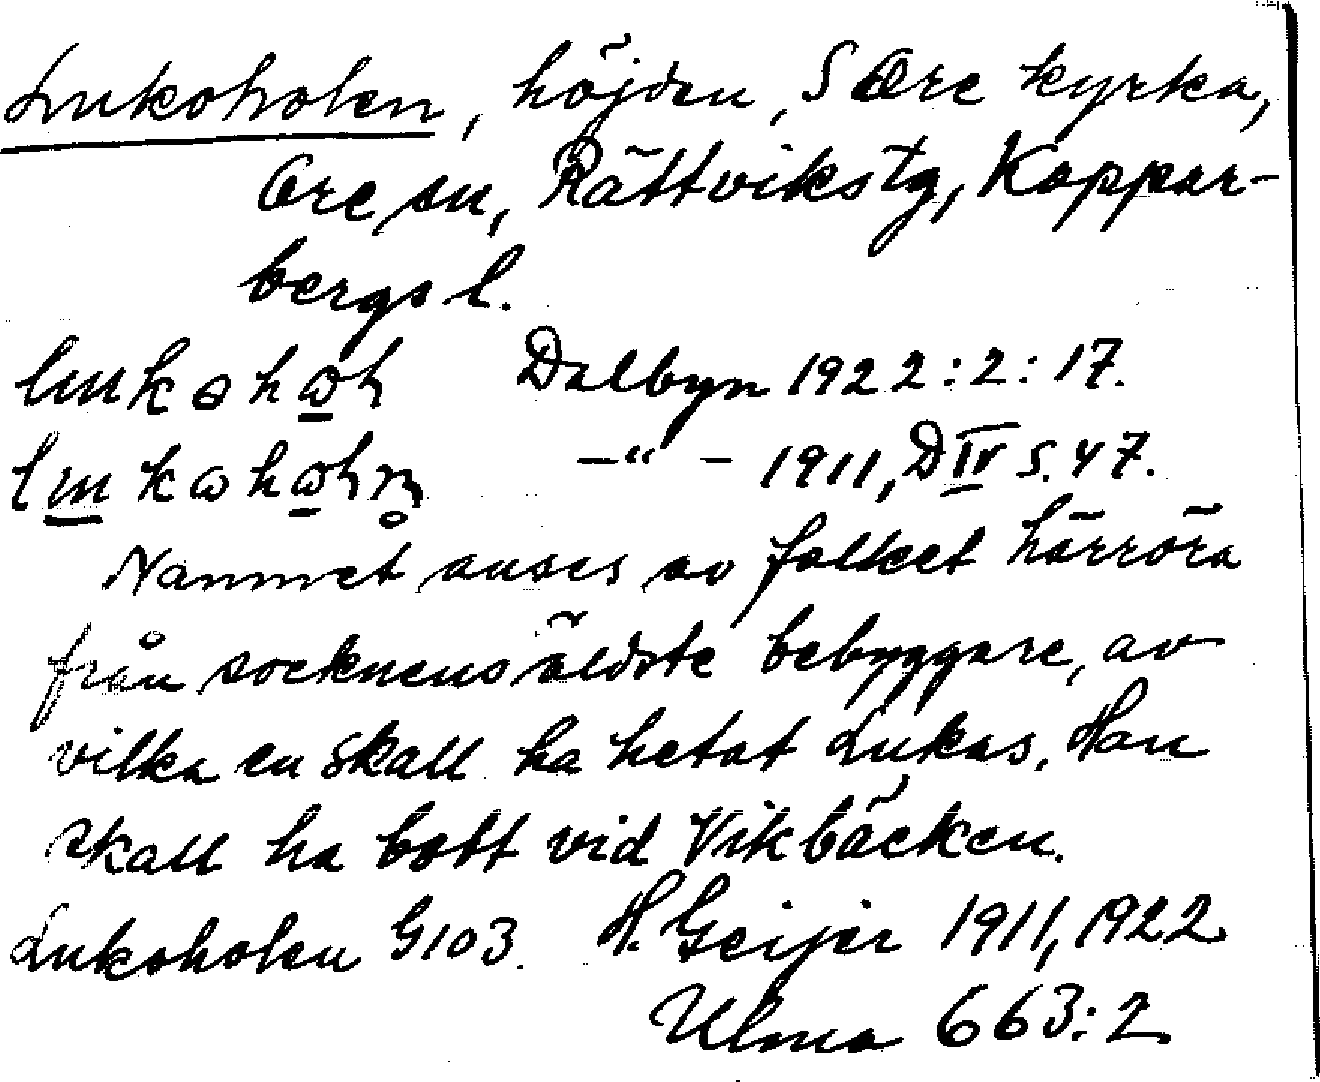 Lukoholen, höjden, S Ore kyrka,
Ore sn, Rättviks tg, Koppar-
bergs l.
Dalbyn 1922:2:17.
–"– 1911, D IV s. 47.
Namnet anses av folket härröra
från socknens äldste bebyggare, av
vilka en skall ha hetat Lukas. Han
skall ha bott vid Vikbäcken.
Lukoholen G103. H. Geijer 1911, 1922
Ulma 663:2